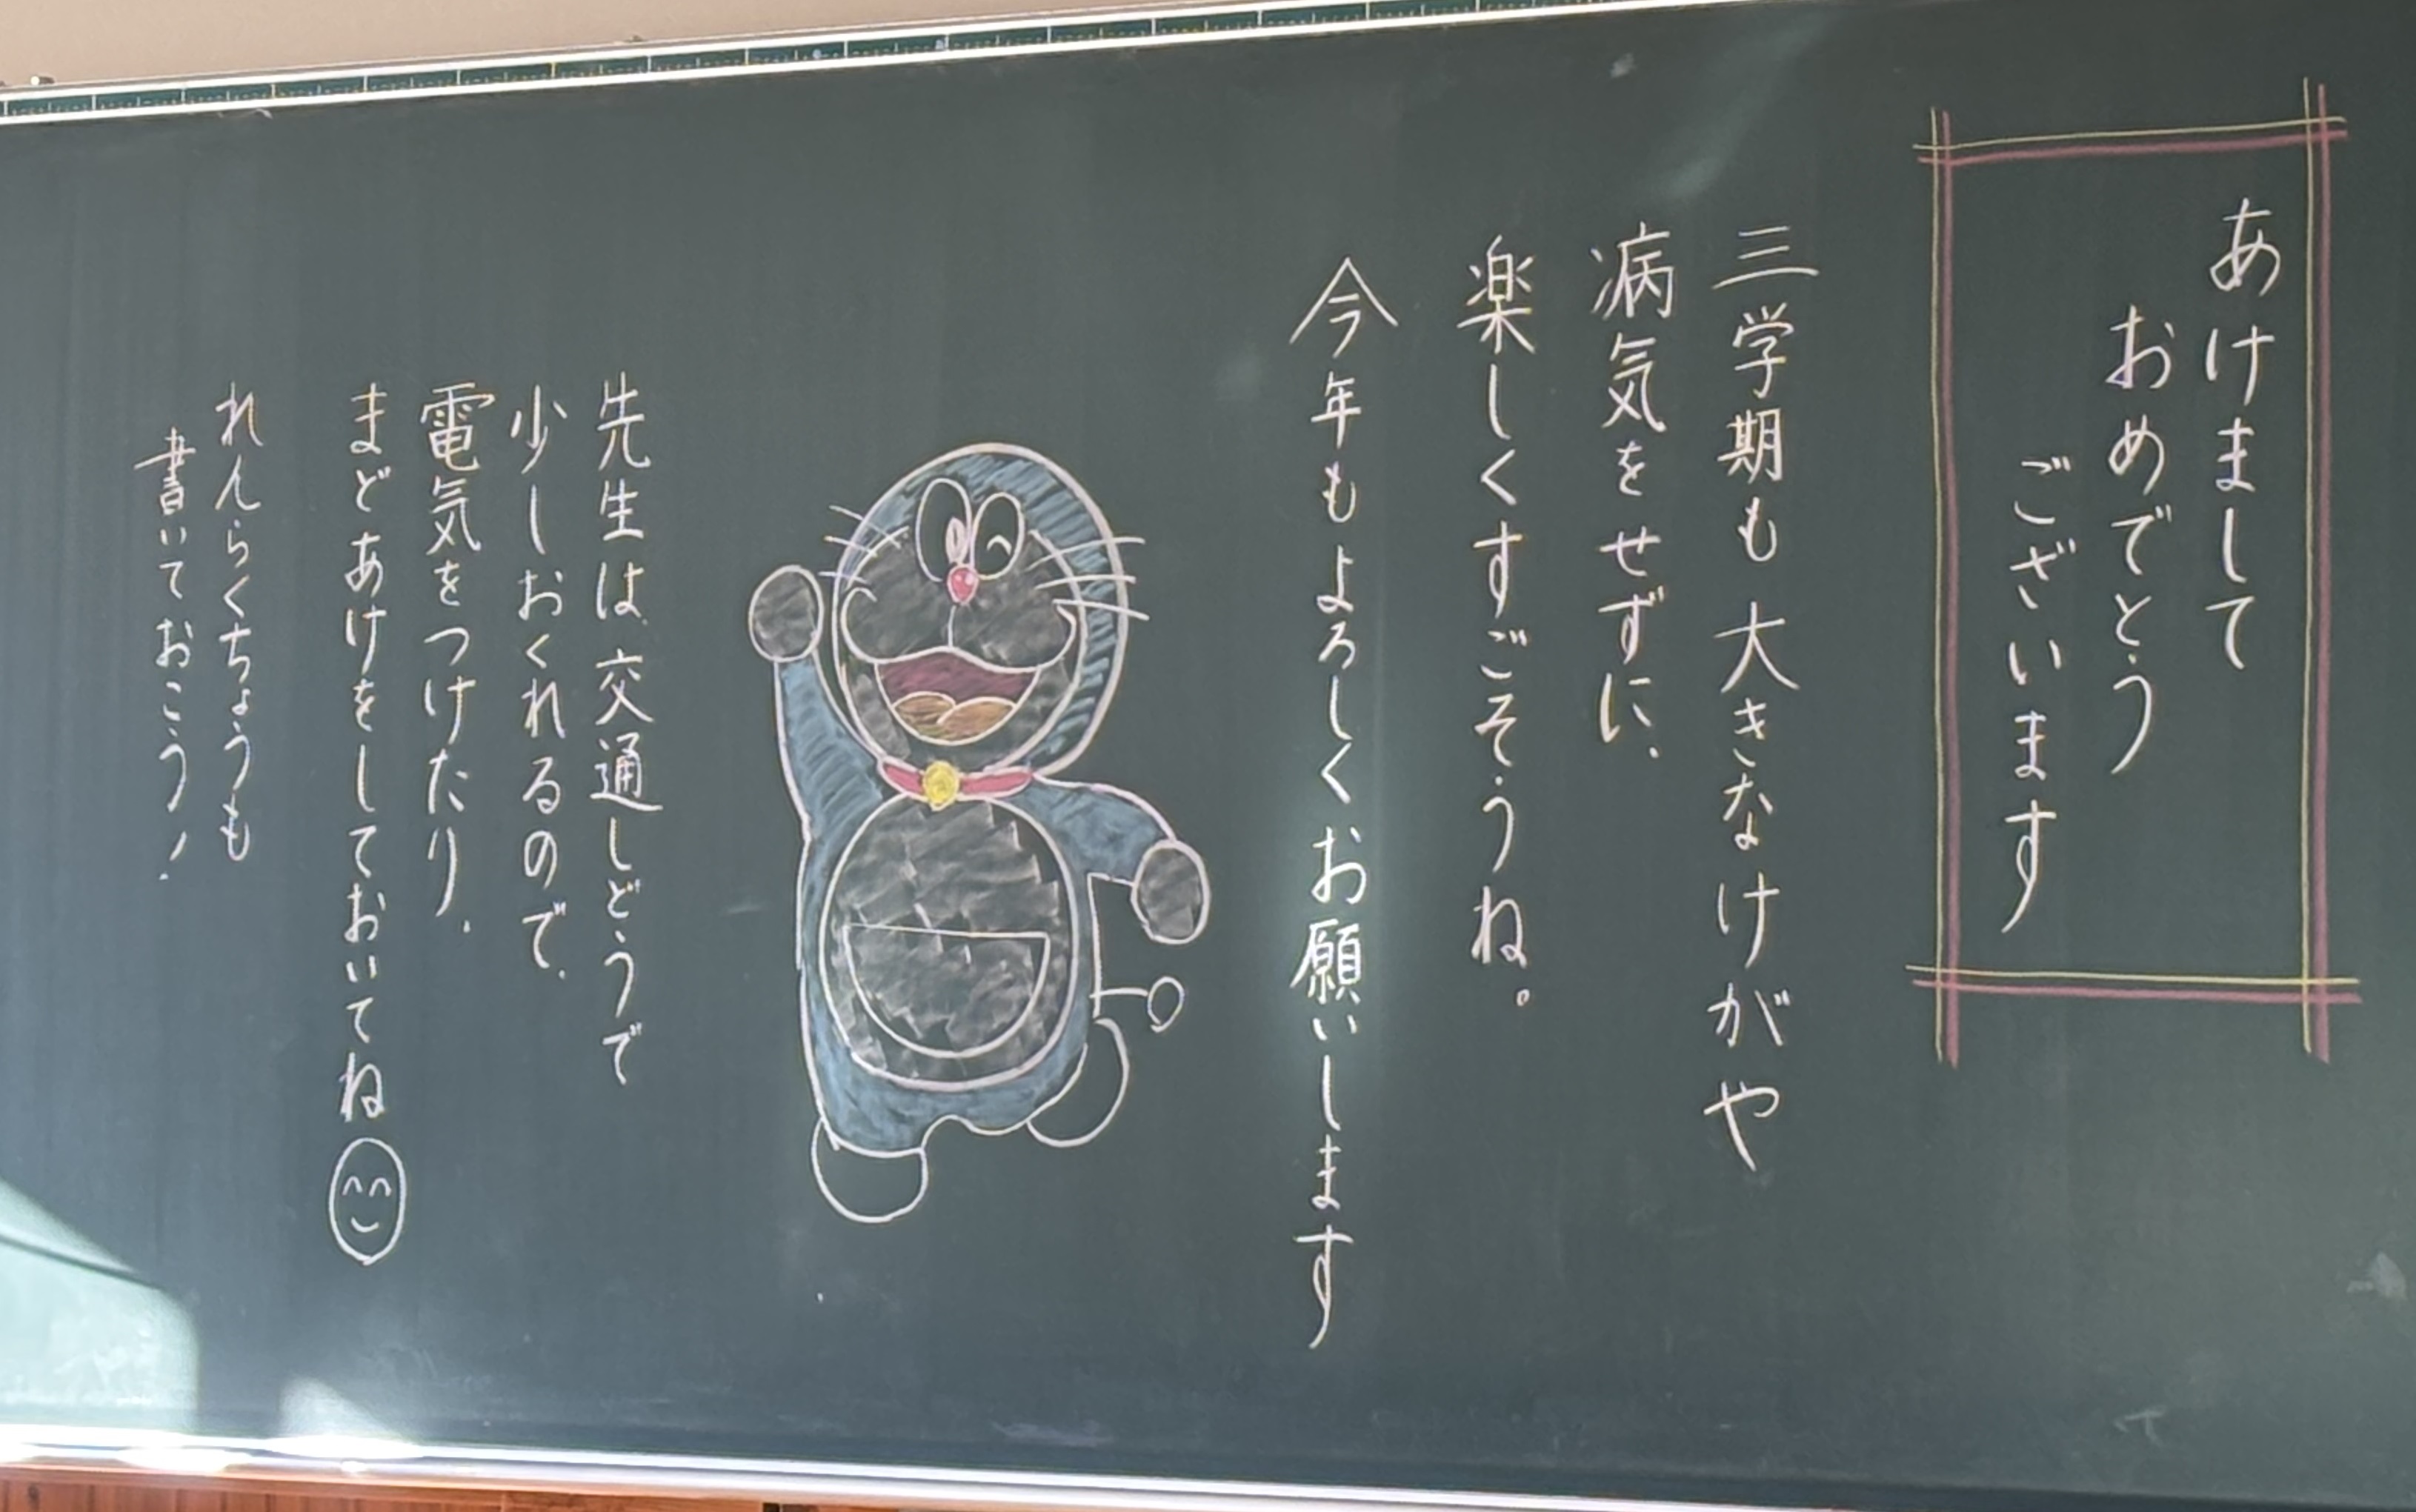 あけまして
おめでとう
ございます
三学期も大きなけがや
病気をせずに、
楽しくすごそうね。
今年もよろしくお願いします
先生は、交通しどうで
少しおくれるので、
電気をつけたり、
まどあけをしておいてね
れんらくちょうも
書いておこう!